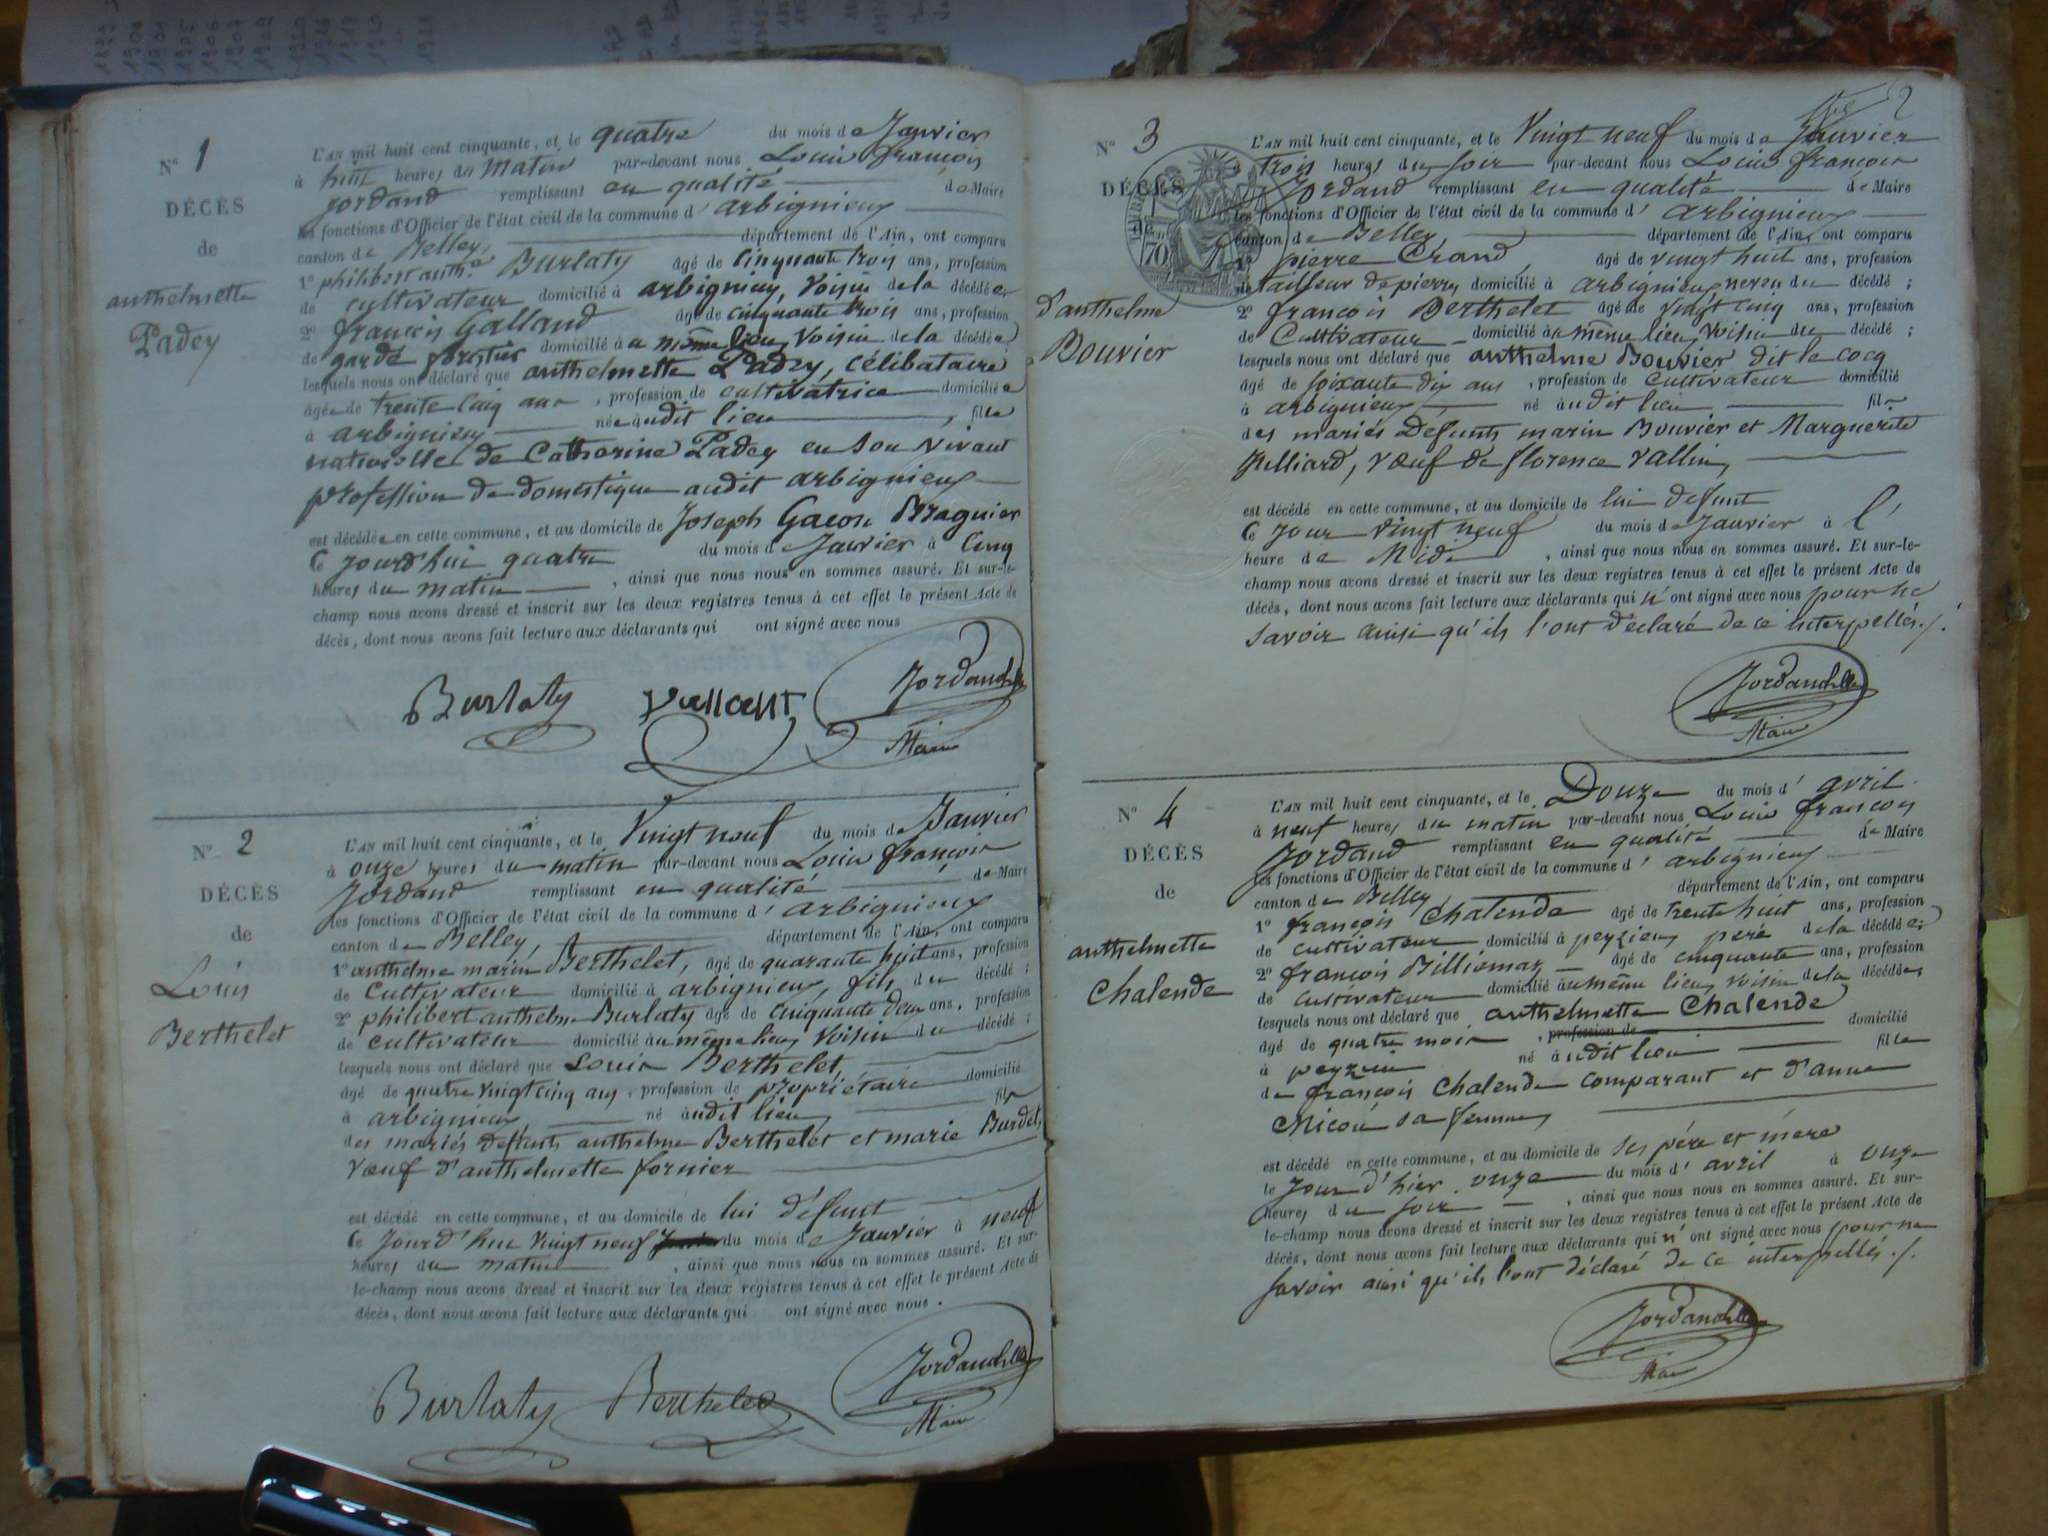 1899
1900
1901
1905
1906
1907
N° 1
DÉCÈS
de
anthelmette
Padey
L'AN mil huit cent cinquante, et le quatre du mois de Janvier
à huit heures du matin par-devant nous Louis françois
Jordand remplissant en qualité de Maire
les fonctions d'Officier de l'état civil de la commune d'arbignieux
canton de Belley, département de l'Ain, ont comparu
1° philibert anth.e Burlaty âgé de cinquante trois ans, profession
de cultivateur domicilié à arbignieux, voisin de la décédée;
2° françois Galland âgé de cinquante trois ans, profession
de garde forestier domicilié au même lieu, voisin de la décédée
lesquels nous ont déclaré que anthelmette Padey, célibataire
âgée de trente cinq ans, profession de cultivatrice domiciliée
à arbignieux née audit lieu, fille
naturelle de Catherine Padey en son vivant
profession de domestique audit arbignieux
est décédée en cette commune, et au domicile de Joseph Gacon Braguier
Ce jourd'hui quatre du mois de Janvier à cinq
heures du matin, ainsi que nous nous en sommes assuré. Et sur-le-
champ nous avons dressé et inscrit sur les deux registres tenus à cet effet le présent Acte de
décès, dont nous avons fait lecture aux déclarants qui ont signé avec nous
Burlaty Jordand
Maire
N° 2
DÉCÈS
de
Louis
Berthelet
L'AN mil huit cent cinquante, et le Vingt neuf du mois de Janvier
à onze heures du matin par-devant nous Louis françois
Jordand remplissant en qualité de Maire
les fonctions d'Officier de l'état civil de la commune d'arbignieux
canton de Belley, département de l'Ain, ont comparu
1° anthelme marin Berthelet, âgé de quarante huit ans, profession
de Cultivateur domicilié à arbignieux, fils du décédé;
2° philibert anthelme Burlaty âgé de cinquante deux ans, profession
de cultivateur domicilié au même lieu, voisin du décédé;
lesquels nous ont déclaré que Louis Berthelet,
âgé de quatre vingt cinq ans, profession de propriétaire domicilié
à arbignieux, né audit lieu, fils
des mariés deffunts anthelme Berthelet et marie Burdet,
vœuf d'anthelmette fornier
est décédé en cette commune, et au domicile de lui défunt
le Jourd'hui vingt neuf du mois de Janvier à neuf
heures du matin, ainsi que nous nous en sommes assuré. Et sur-
le-champ nous avons dressé et inscrit sur les deux registres tenus à cet effet le présent Acte de
décès, dont nous avons fait lecture aux déclarants qui ont signé avec nous.
Burlaty Berthelet Jordand
Maire
2
N° 3
DÉCÈS
de
d'anthelme
Bouvier
TIMBRE
70
L'AN mil huit cent cinquante, et le Vingt neuf du mois de Janvier
à trois heures du soir par-devant nous Louis françois
Jordand remplissant en qualité de Maire
les fonctions d'Officier de l'état civil de la commune d'arbignieux
canton de Belley, département de l'Ain, ont comparu
1° pierre Crand, âgé de vingt huit ans, profession
de tailleur de pierre, domicilié à arbignieux neveu du décédé;
2° françois Berthelet âgé de vingt cinq ans, profession
de Cultivateur domicilié au même lieu, voisin du décédé;
lesquels nous ont déclaré que anthelme Bouvier dit le cocq
âgé de soixante dix ans, profession de cultivateur domicilié
à arbignieux, né audit lieu fils
des mariés Defunts marin Bouvier et Marguerite
Julliard, vœuf de florence Vallin,
est décédé en cette commune, et au domicile de lui defunt
Ce jour vingt neuf du mois de Janvier à l'
heure de Midi, ainsi que nous nous en sommes assuré. Et sur-le-
champ nous avons dressé et inscrit sur les deux registres tenus à cet effet le présent Acte de
décès, dont nous avons fait lecture aux déclarants qui n'ont signé avec nous pour ne
savoir ainsi qu'ils l'ont déclaré de ce interpellés./.
Jordand
Maire
N° 4
DÉCÈS
de
anthelmette
Chalende
L'AN mil huit cent cinquante, et le Douze du mois d'avril
à neuf heures du matin par-devant nous Louis françois
Jordand remplissant en qualité de Maire
les fonctions d'Officier de l'état civil de la commune d'arbignieux
canton de Belley département de l'Ain, ont comparu
1° françois Chalende âgé de trente huit ans, profession
de cultivateur domicilié à peyzieu, père de la décédée;
2° françois Billiomaz âgé de cinquante ans, profession
de cultivateur domicilié au même lieu, voisin de la décédée,
lesquels nous ont déclaré que anthelmette Chalende
âgé de quatre mois, profession de domicilié
à peyzieu né audit lieu fille
de françois Chalende comparant et d'anne
Micoud sa femme,
est décédé en cette commune, et au domicile de ses père et mère
le jour d'hier onze du mois d'avril à onze
heures du soir, ainsi que nous nous en sommes assuré. Et sur-
le-champ nous avons dressé et inscrit sur les deux registres tenus à cet effet le présent Acte de
décès, dont nous avons fait lecture aux déclarants qui n'ont signé avec nous pour ne
savoir ainsi qu'ils l'ont déclaré de ce interpellés./.
Jordand
Maire